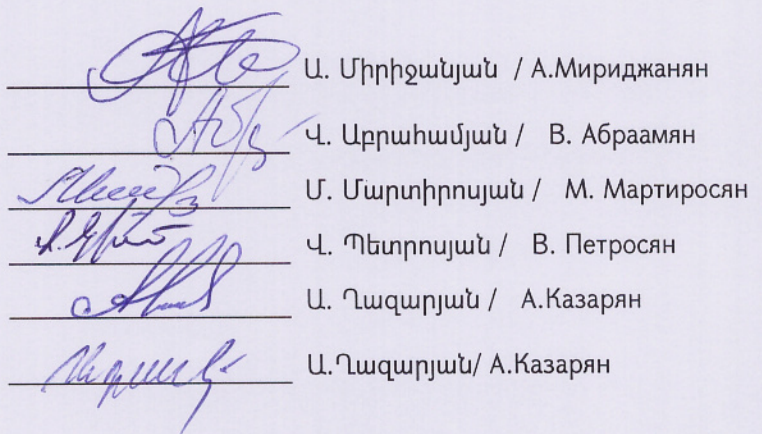 Ա. Միրիջանյան / А.Мириджанян
Վ. Աբրահամյան / В. Абраамян
Մ. Մարտիրոսյան / М. Мартиросян
Վ. Պետրոսյան / В. Петросян
Ա. Ղազարյան / А.Казарян
Ա.Ղազարյան/ А.Казарян